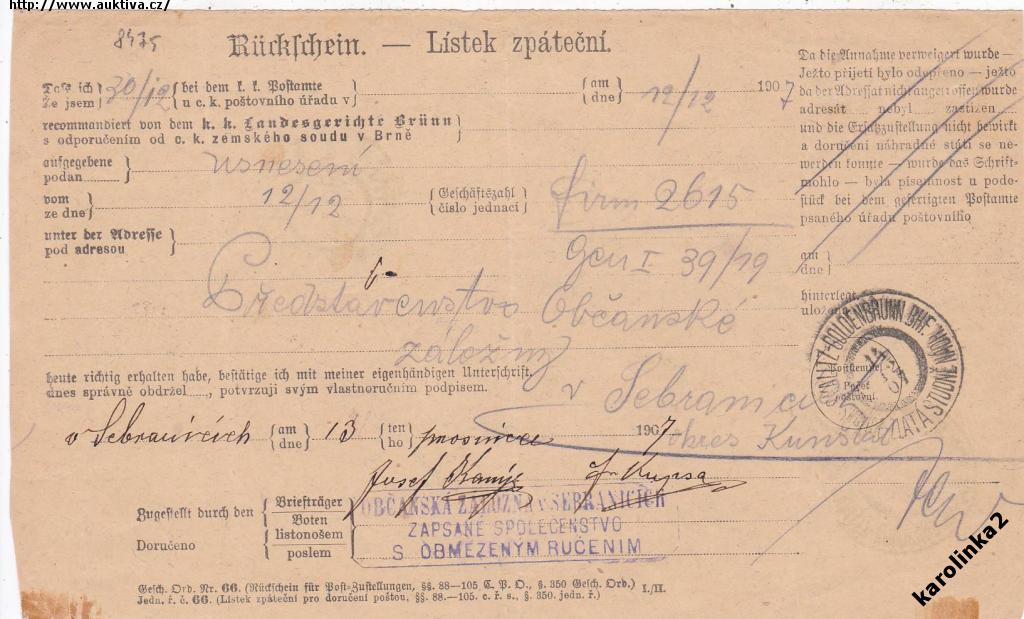 http://www.auktiva.cz/
8475
Rückschein. — Lístek zpáteční.
Daß ich
Že jsem
30/12
bei dem k. k. Postamte
u c. k. poštovního úřadu v
am
dne
12/12
1907
recommandiert von dem k. k. Landesgerichte Brünn
s odporučením od c. k. zemského soudu v Brně
aufgegebene
podan
usnesení
vom
ze dne
12/12
Geschäftszahl
číslo jednací
firm 2615
unter der Adresse
pod adresou
Gen I 39/19
Představenstvo Občanské
záložny
v Sebranicích
okres Kunštát
heute richtig erhalten habe, bestätige ich mit meiner eigenhändigen Unterschrift.
dnes správně obdržel, potvrzuji svým vlastnoručním podpisem.
v Sebranicích
am
dne
13
ten
ho
prosince
1907
Josef
Zugestellt durch den
Doručeno
Briefträger
Boten
listonošem
poslem
OBČANSKÁ ZÁLOŽNA v SEBRANICÍCH
ZAPSANÉ SPOLEČENSTVO
S OBMEZENÝM RUČENÍM
Gesch. Ord. Nr. 66. (Rückschein für Post-Zustellungen, §§. 88—105 C. P. O., §. 350 Gesch. Ord.)
Jedn. ř. č. 66. (Lístek zpáteční pro doručení poštou, §§. 88—105. c. ř. s., §. 350. jedn. ř.)
I./II.
Da die Annahme verweigert wurde —
Ježto přijetí bylo odepřeno — ježto
da der Adressat nicht angetroffen wurde
adresát nebyl zastižen
und die Ersatzzustellung nicht bewirkt
a doručení náhradné státi se ne-
werden konnte — wurde das Schrift-
mohlo — byla písemnost u pode-
stück bei dem gefertigten Postamte
psaného úřadu poštovního
am
dne
hinterlegt.
uložena.
Poststempel
Pečeť
poštovní.
SKALITZ-GOLDENBRUNN BHF.
ZLATÁ STUDNĚ
karolinka2